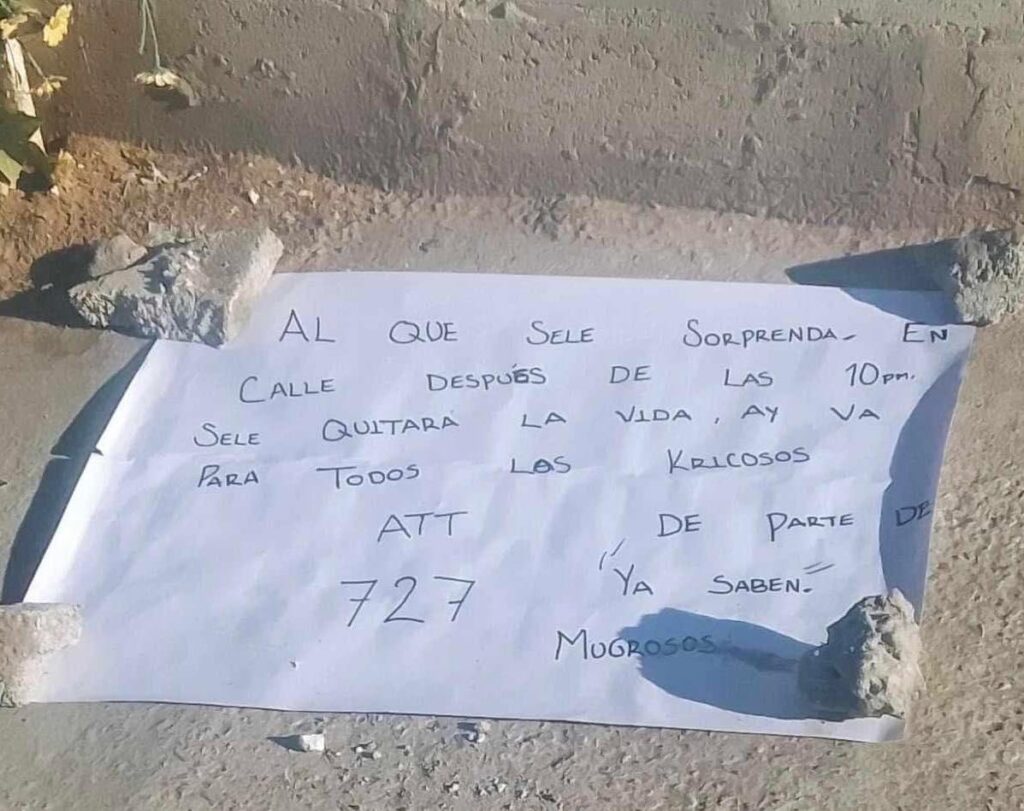 AL QUE SELE SORPRENDA. EN
CALLE DESPUÉS DE LAS 10pm.
SELE QUITARÁ LA VIDA, AY VA
PARA TODOS LOS KRICOSOS
ATT DE PARTE DE
727 "YA SABEN."
MUGROSOS